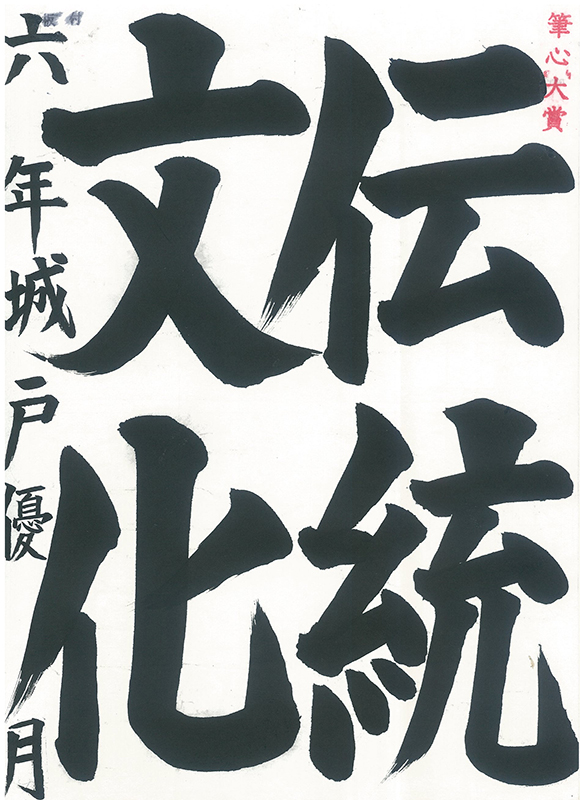 筆心大賞
伝統
文化
六年城戸優月